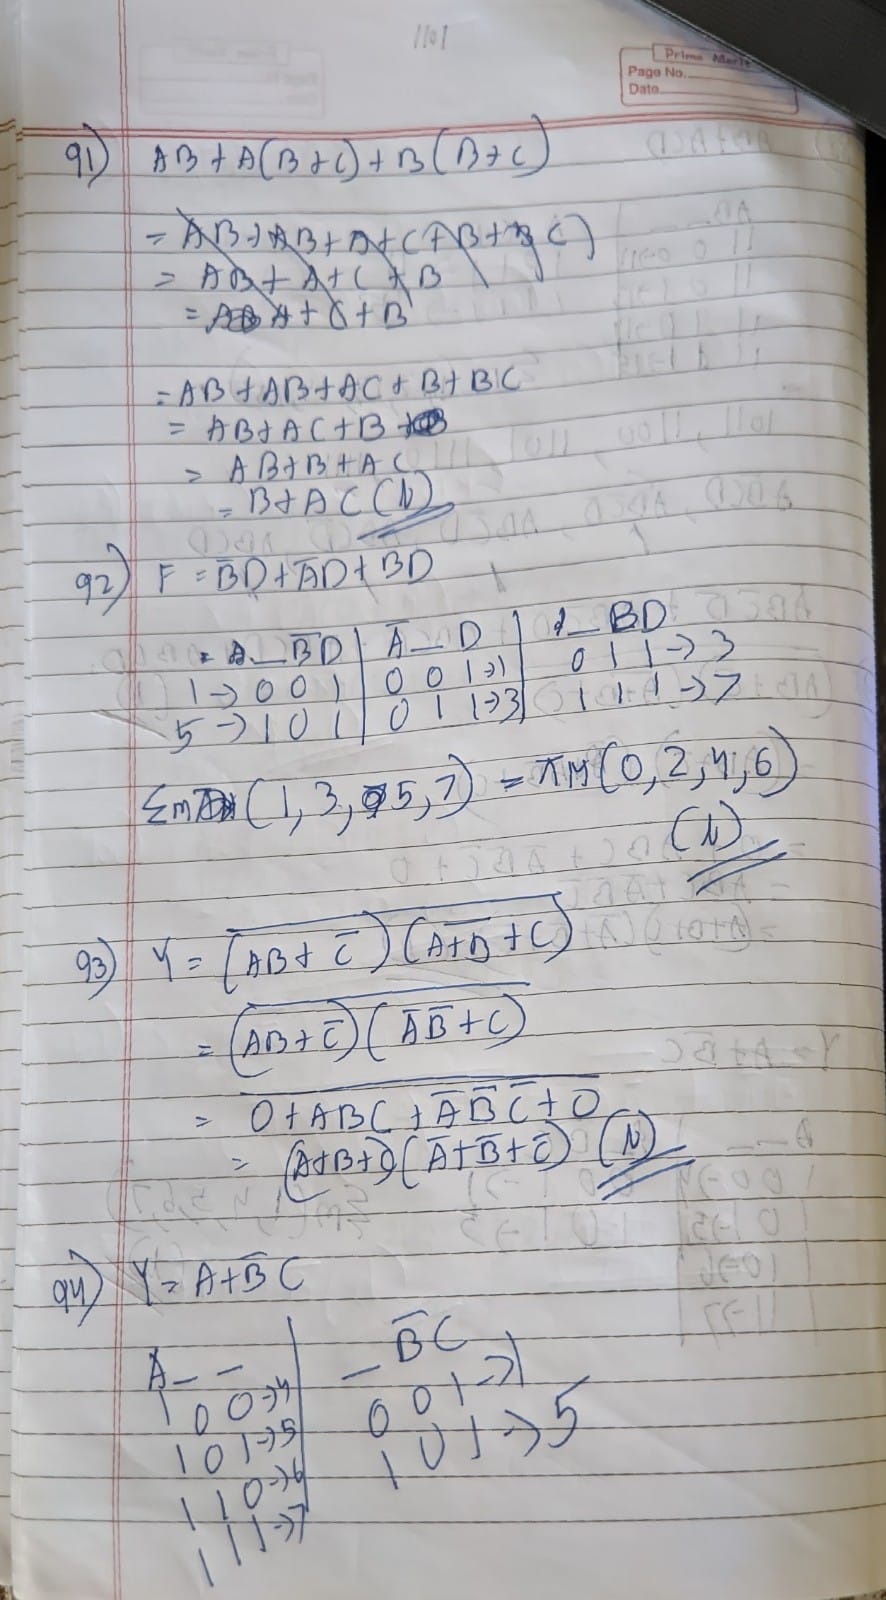 1101
Prime Merit
Page No.
Date
91) AB + A(B+C) + B(B+C)
= AB + AB + A + C + B + BC)
= AB + A + C + B
= A + C + B
= AB + AB + AC + B + BC
= AB + AC + B
= AB + B + AC
= B + AC (N)
92) F = B̅D + A̅D + BD
= A _ B̅D | A̅ _ D | _ BD
1 → 0 0 1 | 0 0 1 → 1 | 0 1 1 → 3
5 → 1 0 1 | 0 1 1 → 3 | 1 1 1 → 7
Σm (1, 3, 5, 7) = πM (0, 2, 4, 6)
(N)
93) Y = \overline{(AB + C̅)(\overline{A+B} + C)}
= \overline{(AB + C̅)(A̅B̅ + C)}
= \overline{0 + ABC + A̅B̅C̅ + 0}
= (A+B+C)(A̅+B̅+C̅) (N)
94) Y = A + B̅C
A _ _ | _ B̅C
1 0 0 → 4 | 0 0 1 → 1
1 0 1 → 5 | 1 0 1 → 5
1 1 0 → 6
1 1 1 → 7